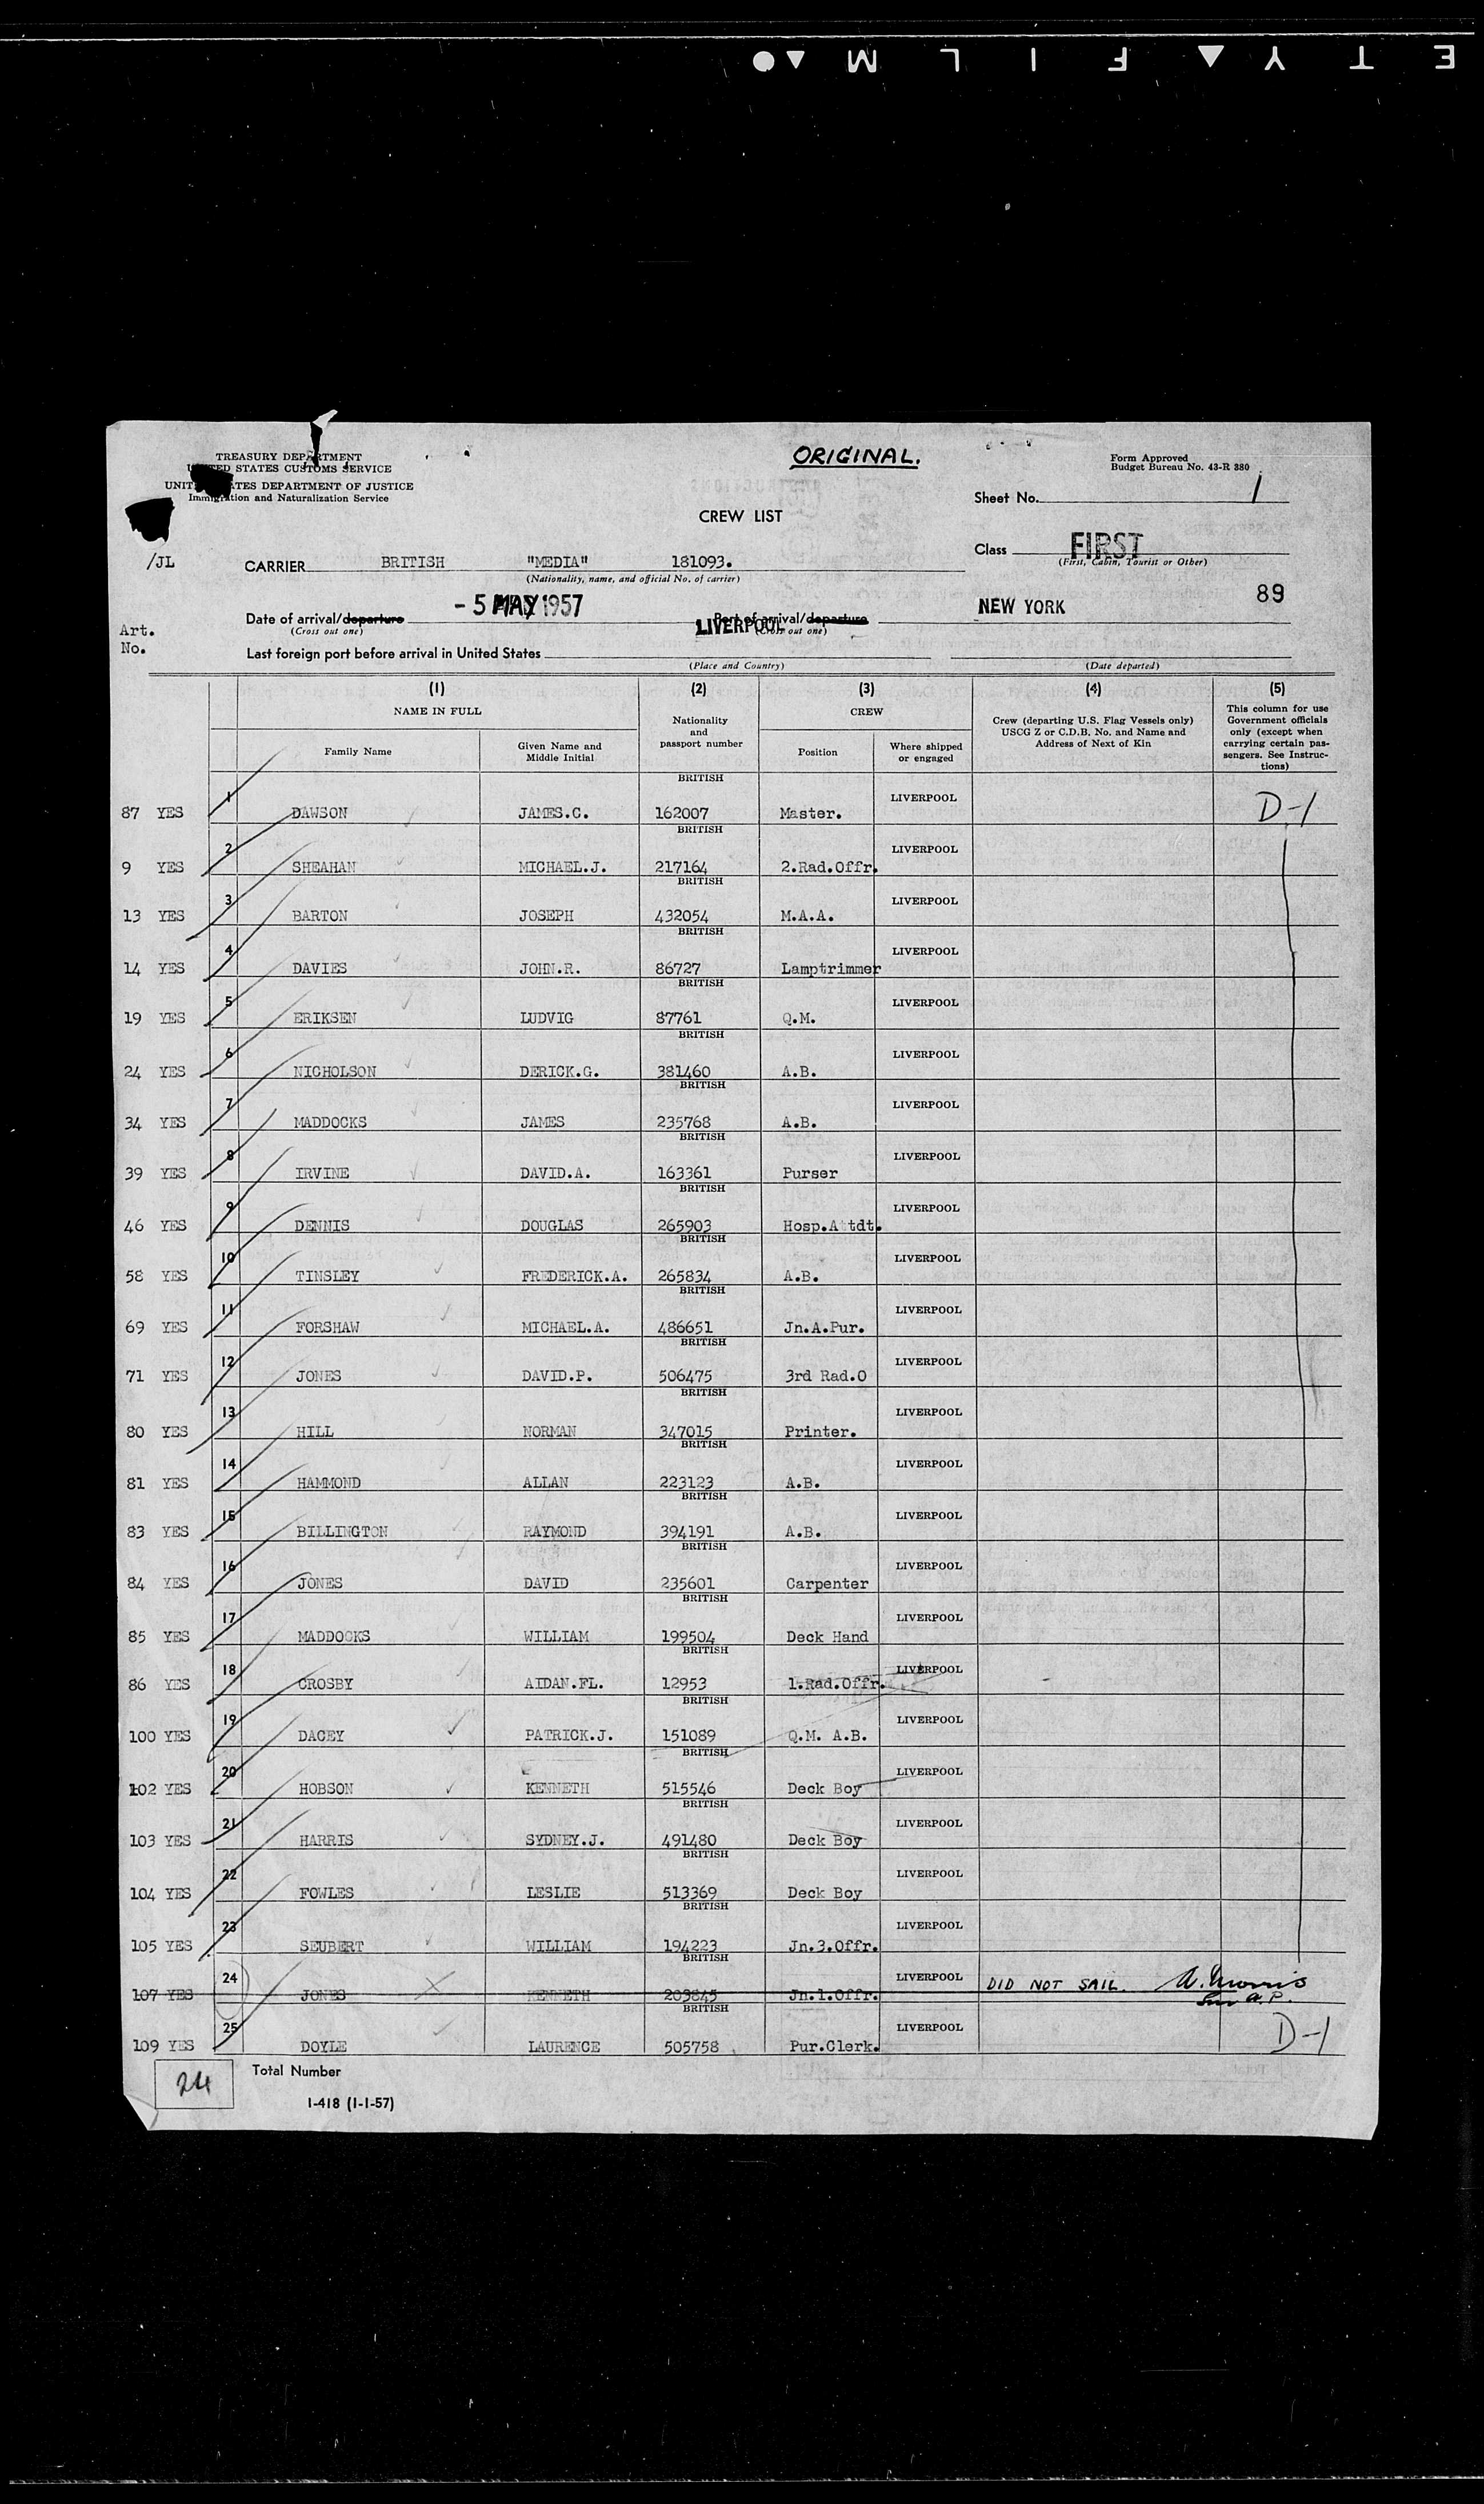 E T Y F I L M
TREASURY DEPARTMENT
UNITED STATES CUSTOMS SERVICE
UNITED STATES DEPARTMENT OF JUSTICE
Immigration and Naturalization Service
ORIGINAL.
Form Approved
Budget Bureau No. 43-R 380
Sheet No. 1
CREW LIST
Class FIRST
(First, Cabin, Tourist or Other)
/JL
CARRIER BRITISH "MEDIA" 181093.
(Nationality, name, and official No. of carrier)
89
Date of arrival/departure - 5 MAY 1957 Port of arrival/departure NEW YORK
(Cross out one) (Cross out one)
Art.
No.
LIVERPOOL
Last foreign port before arrival in United States
(Place and Country) (Date departed)
(1) (2) (3) (4) (5)
NAME IN FULL Nationality and passport number CREW Crew (departing U.S. Flag Vessels only) USCG Z or C.D.B. No. and Name and Address of Next of Kin This column for use Government officials only (except when carrying certain passengers. See Instructions)
Family Name Given Name and Middle Initial Position Where shipped or engaged
87 YES 1 DAWSON JAMES.C. BRITISH 162007 Master. LIVERPOOL D-1
9 YES 2 SHEAHAN MICHAEL.J. BRITISH 217164 2.Rad.Offr. LIVERPOOL
13 YES 3 BARTON JOSEPH BRITISH 432054 M.A.A. LIVERPOOL
14 YES 4 DAVIES JOHN.R. BRITISH 86727 Lamptrimmer LIVERPOOL
19 YES 5 ERIKSEN LUDVIG BRITISH 87761 Q.M. LIVERPOOL
24 YES 6 NICHOLSON DERICK.G. BRITISH 381460 A.B. LIVERPOOL
34 YES 7 MADDOCKS JAMES BRITISH 235768 A.B. LIVERPOOL
39 YES 8 IRVINE DAVID.A. BRITISH 163361 Purser LIVERPOOL
46 YES 9 DENNIS DOUGLAS BRITISH 265903 Hosp.Attdt. LIVERPOOL
58 YES 10 TINSLEY FREDERICK.A. BRITISH 265834 A.B. LIVERPOOL
69 YES 11 FORSHAW MICHAEL.A. BRITISH 486651 Jn.A.Pur. LIVERPOOL
71 YES 12 JONES DAVID.P. BRITISH 506475 3rd Rad.O LIVERPOOL
80 YES 13 HILL NORMAN BRITISH 347015 Printer. LIVERPOOL
81 YES 14 HAMMOND ALLAN BRITISH 223123 A.B. LIVERPOOL
83 YES 15 BILLINGTON RAYMOND BRITISH 394191 A.B. LIVERPOOL
84 YES 16 JONES DAVID BRITISH 235601 Carpenter LIVERPOOL
85 YES 17 MADDOCKS WILLIAM BRITISH 199504 Deck Hand LIVERPOOL
86 YES 18 CROSBY AIDAN.FL. BRITISH 12953 1.Rad.Offr. LIVERPOOL
100 YES 19 DACEY PATRICK.J. BRITISH 151089 Q.M. A.B. LIVERPOOL
102 YES 20 HOBSON KENNETH BRITISH 515546 Deck Boy LIVERPOOL
103 YES 21 HARRIS SYDNEY.J. BRITISH 491480 Deck Boy LIVERPOOL
104 YES 22 FOWLES LESLIE BRITISH 513369 Deck Boy LIVERPOOL
105 YES 23 SEUBERT WILLIAM BRITISH 194223 Jn.3.Offr. LIVERPOOL
107 YES 24 JONES KENNETH BRITISH 203845 Jn.1.Offr. LIVERPOOL DID NOT SAIL. A. Morris
109 YES 25 DOYLE LAURENCE BRITISH 505758 Pur.Clerk. LIVERPOOL D-1
24 Total Number
I-418 (1-1-57)